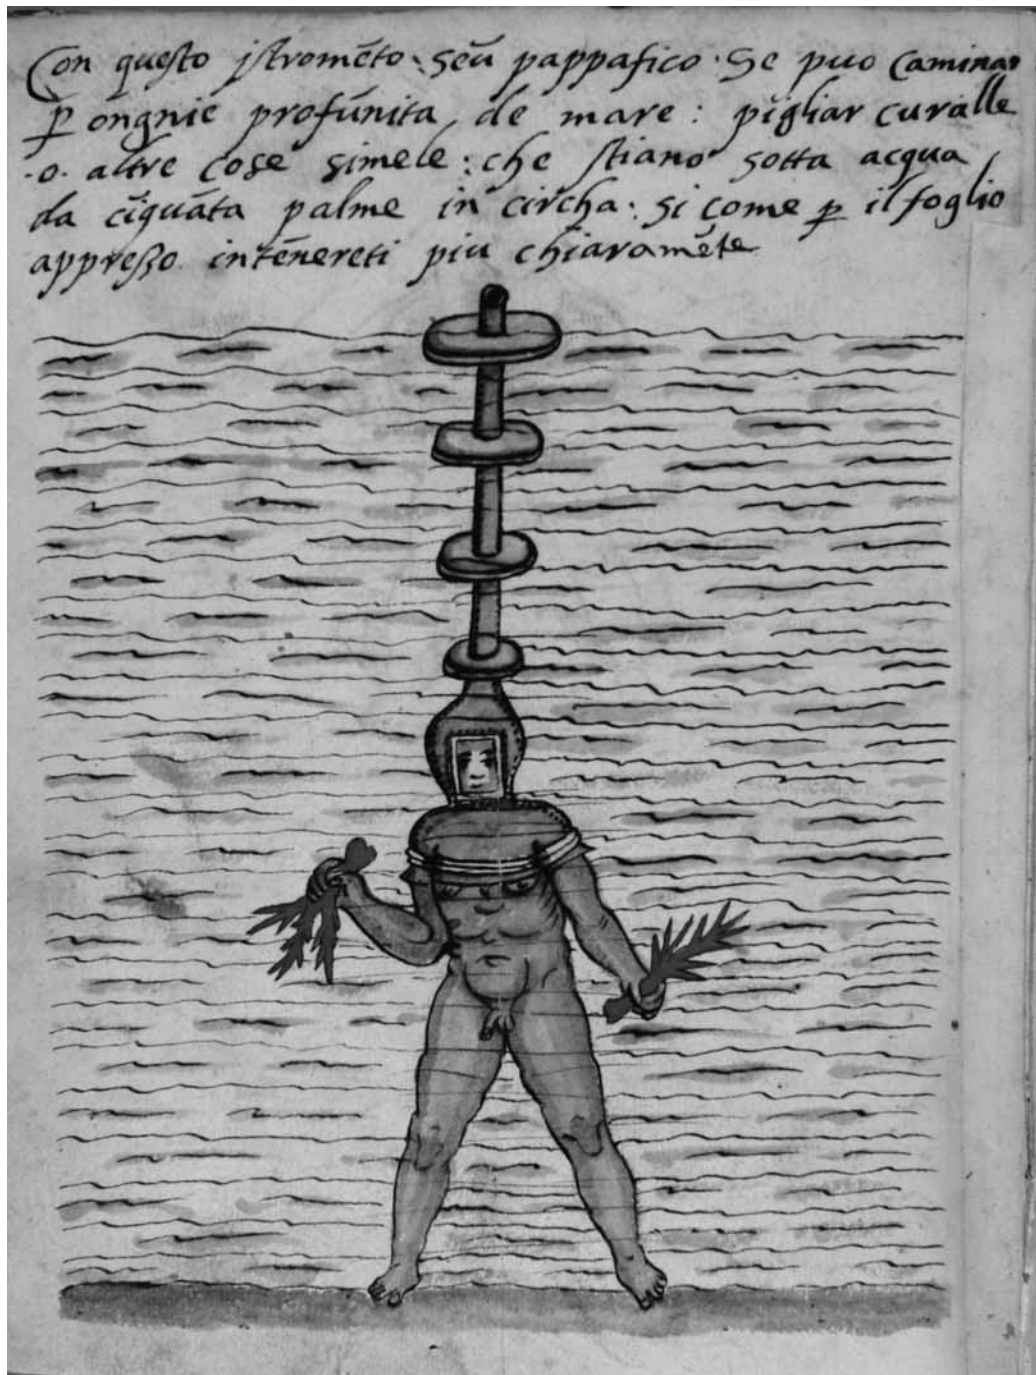 Con questo jstromēto · seū pappafico · Se puo Caminar
ꝑ ōngnie profūnita de mare : pigliar curalle
·o· altre cose simele : che stiano sotta acqua
da cīquāta palme in circha · si come ꝑ il foglio
appresso intēnereti piu chiaramēte